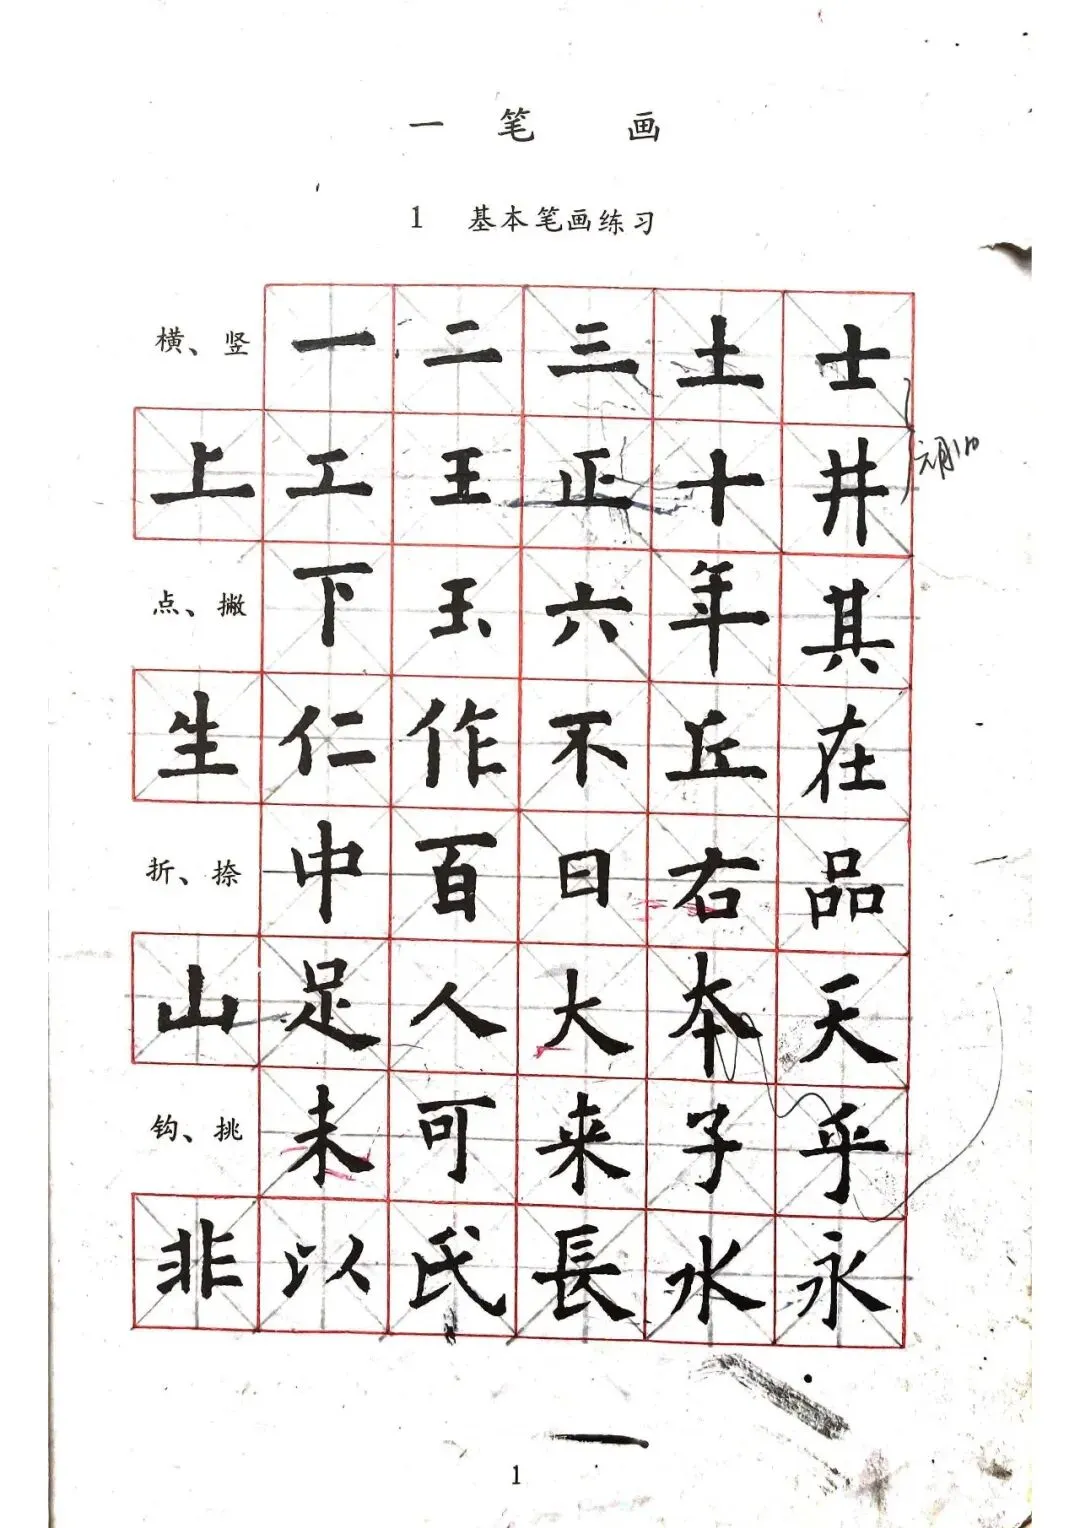 一 笔 画
1 基本笔画练习
横、竖 一 二 三 土 士
上 工 王 正 十 井
点、撇 下 玉 六 年 其
生 仁 作 不 丘 在
折、捺 中 百 日 右 品
山 足 人 大 本 天
钩、挑 未 可 来 子 乎
非 以 氏 長 水 永
1